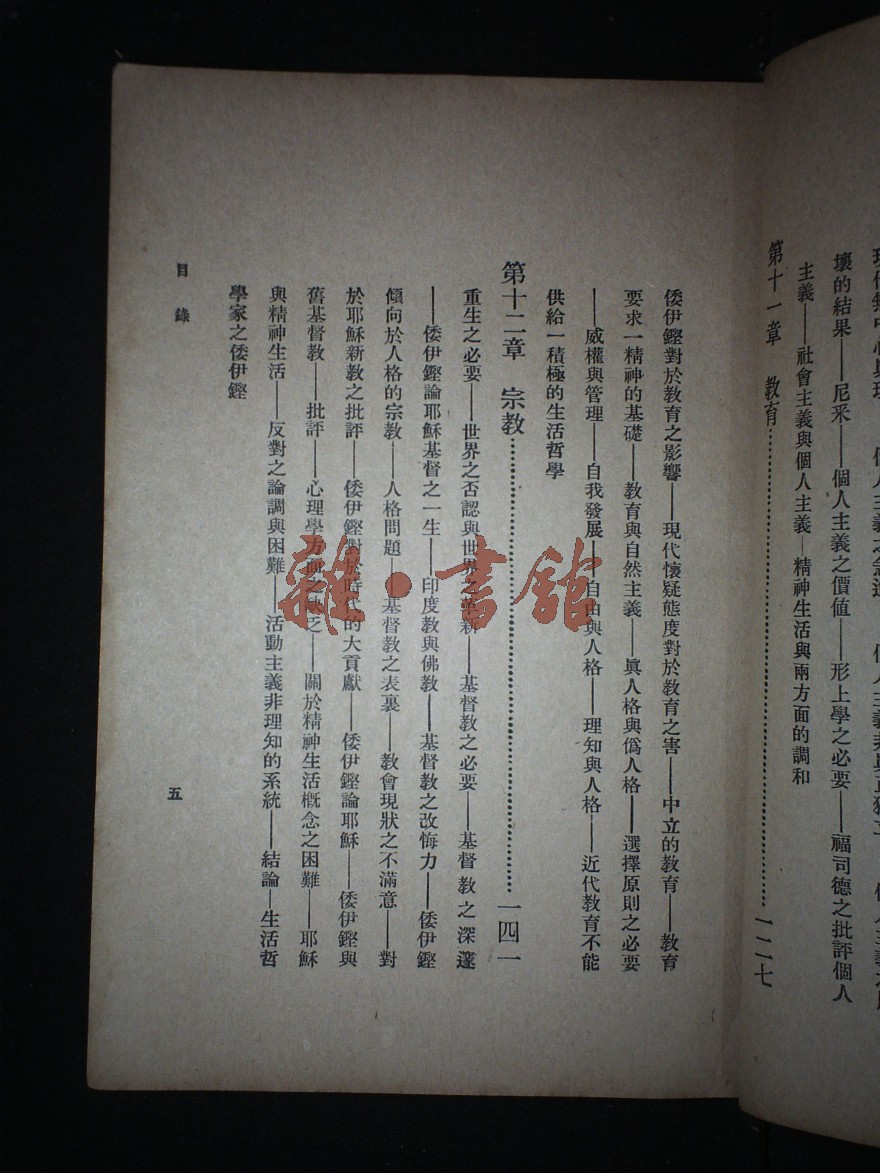 壞的結果——尼采——個人主義之價値——形上學之必要——福司德之批評個人
主義——社會主義與個人主義—精神生活與兩方面的調和
第十一章 教育……一二七
倭伊鏗對於教育之影響——現代懷疑態度對於教育之害——中立的教育——教育
要求一精神的基礎——教育與自然主義——眞人格與僞人格——選擇原則之必要
——威權與管理——自我發展——自由與人格——理知與人格——近代教育不能
供給一積極的生活哲學
第十二章 宗教……一四一
重生之必要——世界之否認與世界之革新——基督教之必要——基督教之深邃
——倭伊鏗論耶穌基督之一生——印度教與佛教——基督教之改悔力——倭伊鏗
傾向於人格的宗教——人格問題——基督教之表裏——教會現狀之不滿意——對
於耶穌新教之批評——倭伊鏗對於時代的大貢獻——倭伊鏗論耶穌——倭伊鏗與
舊基督教——批評——心理學方面之缺乏——關於精神生活槪念之困難——耶穌
與精神生活——反對之論調與困難——活動主義非理知的系統——結論—生活哲
學家之倭伊鏗
目錄
五
雜·書館